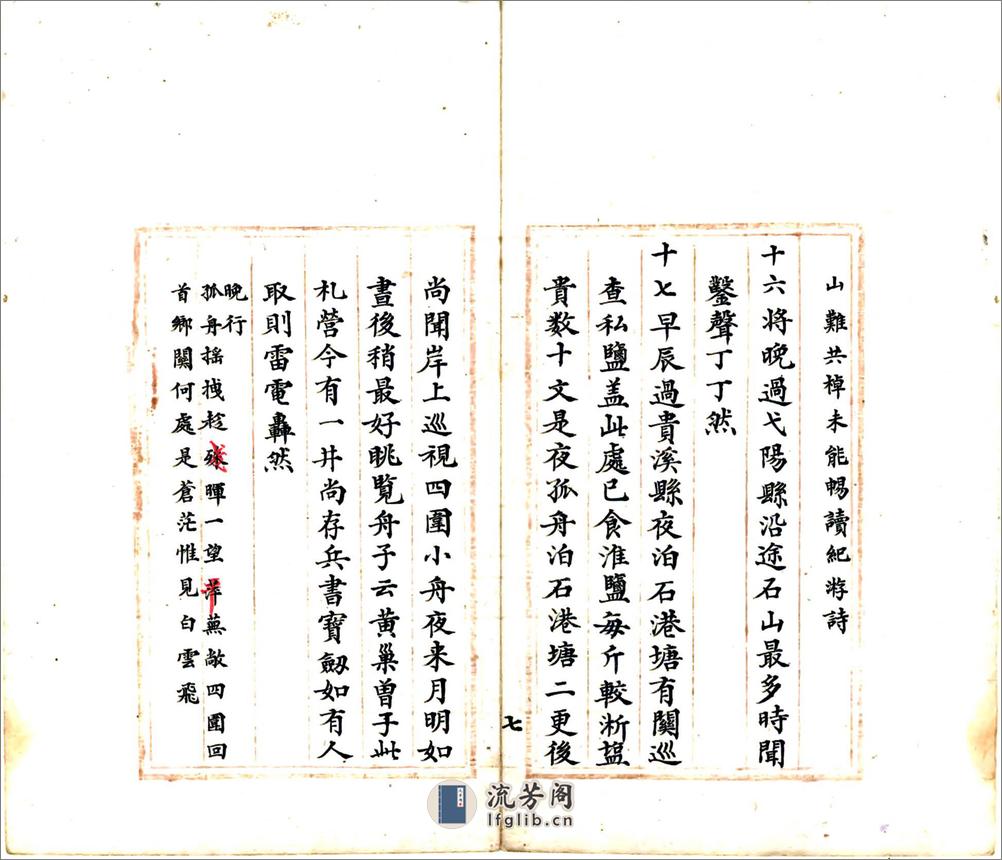 山難共棹未能暢讀紀游詩
十六将晚過弋陽縣沿途石山最多時聞
鑿聲丁丁然
十七早辰過貴溪縣夜泊石港塘有關巡
查私鹽盖此處已食淮鹽每斤較淅塩
貴数十文是夜孤舟泊石港塘二更後
七
尚聞岸上巡視四圍小舟夜来月明如
晝後稍最好眺覧舟子云黄巢曽于此
札營今有一井尚存兵書寶劔如有人
取則雷電轟然
晚行
孤舟摇拽趁殘暉一望萍蕪敞四圍回
首鄉關何處是蒼茫惟見白雲飛
流芳阁
lfglib.cn